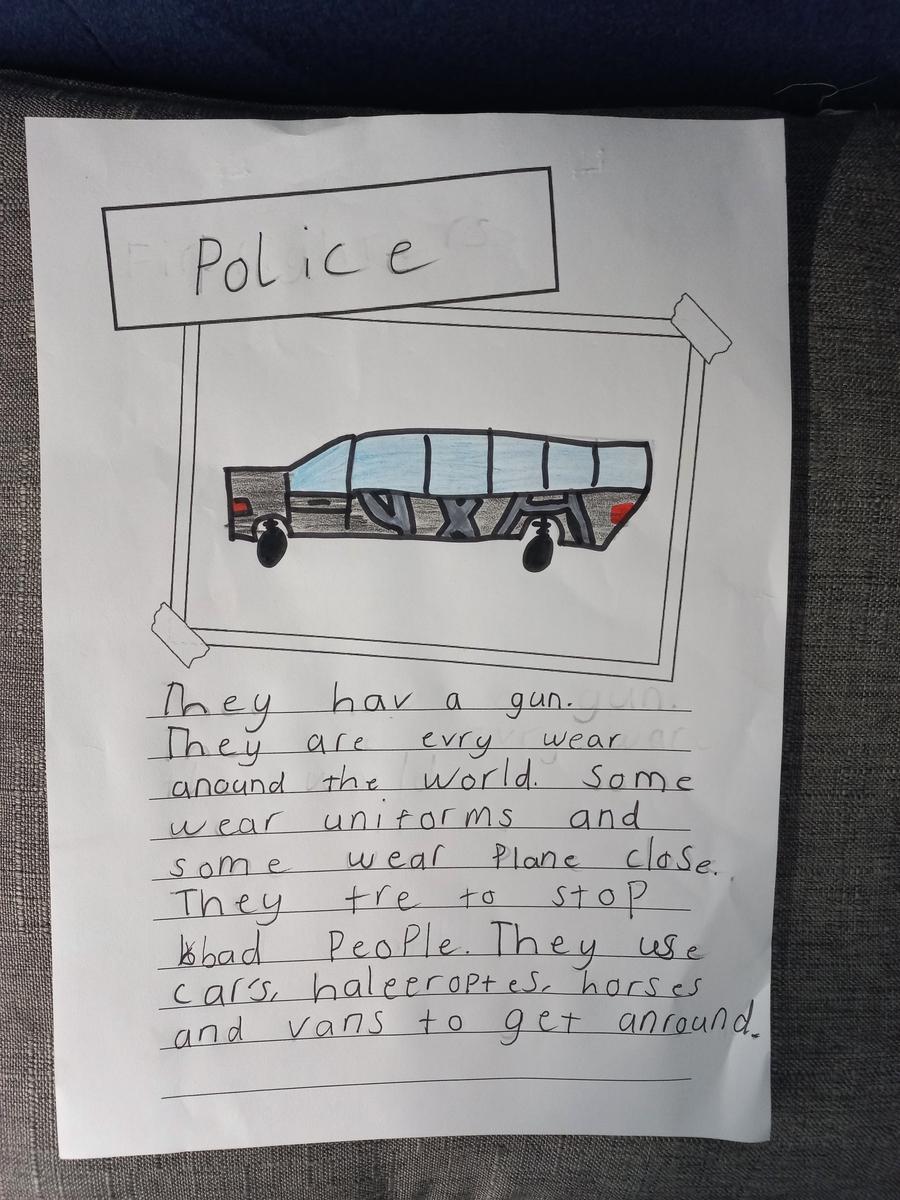 Police
They hav a gun.
They are evry wear
anound the world. Some
wear uniforms and
some wear Plane close.
They tre to stop
bad People. They use
cars, haleeroptes, horses
and vans to get anround.